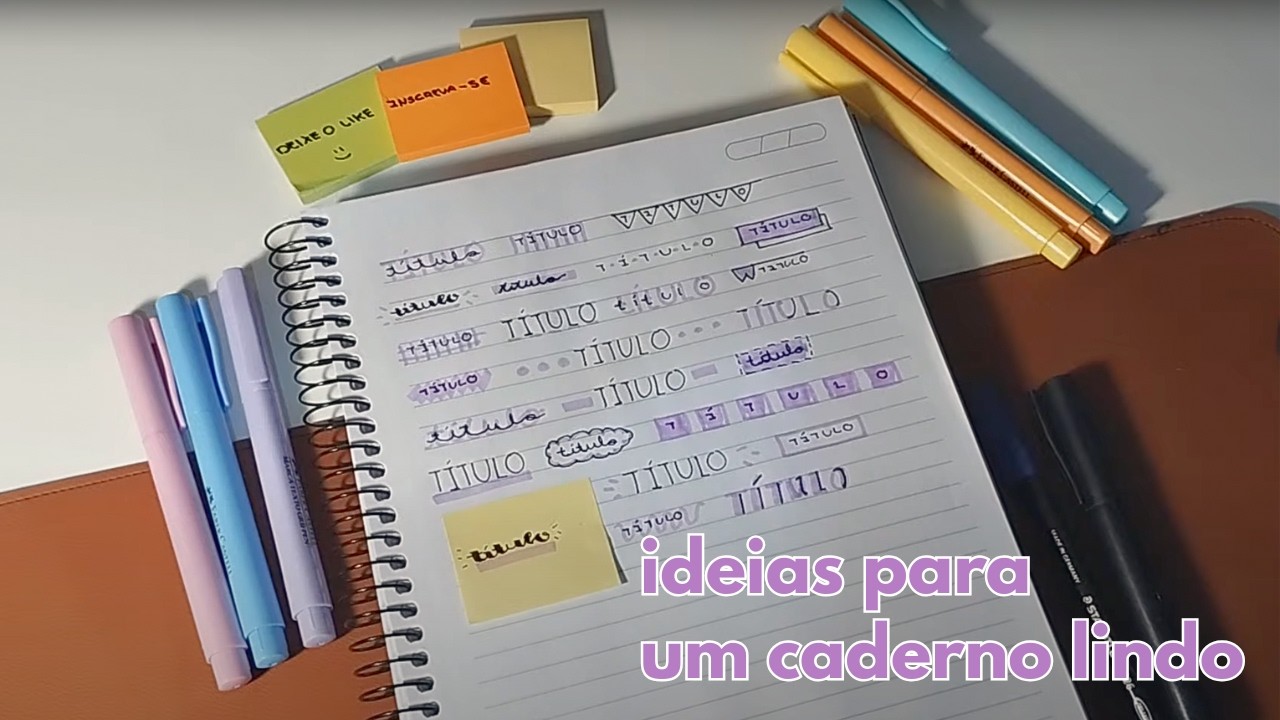 DEIXE O LIKE
INSCREVA-SE
TÍTULO
título TÍTULO TÍTULO
título título T-Í-T-U-L-O TÍTULO
TÍTULO TÍTULO título TÍTULO
TÍTULO TÍTULO TÍTULO
título TÍTULO título
TÍTULO título T Í T U L O
TÍTULO TÍTULO
título TÍTULO TÍTULO
ideias para
um caderno lindo
MADE IN GERMANY